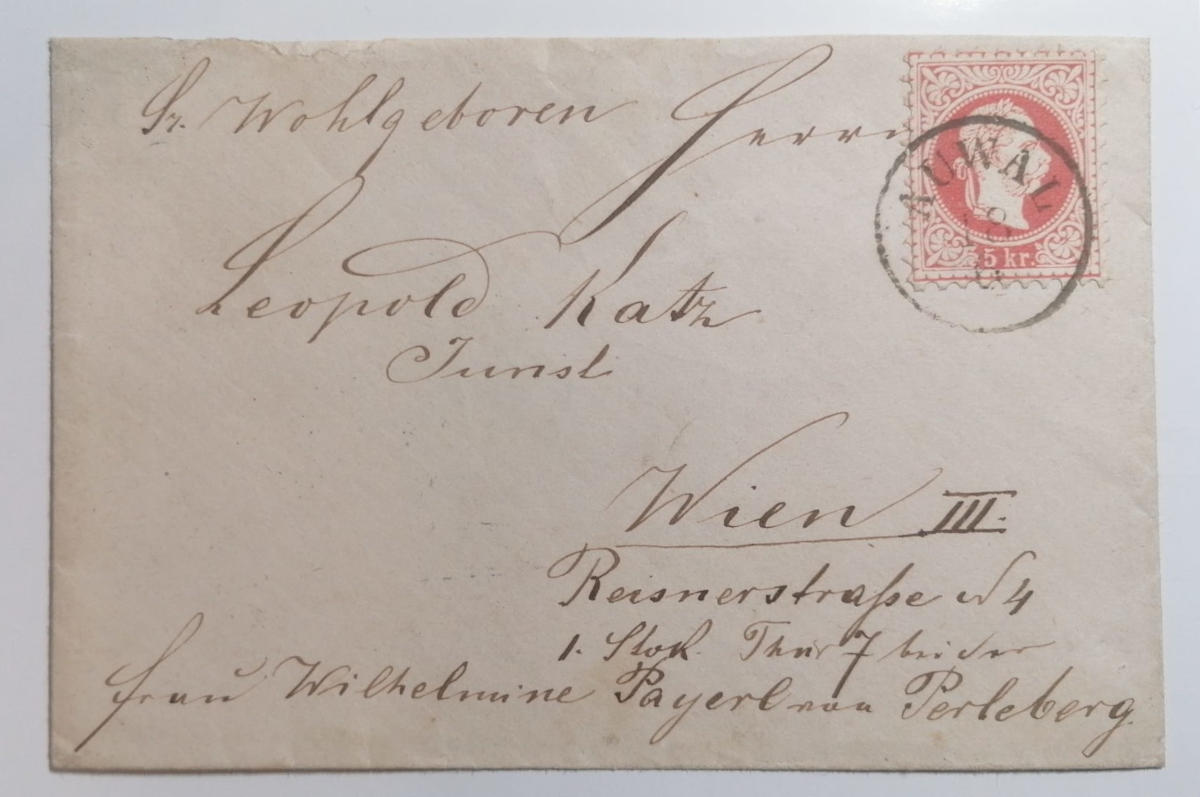 Sr. Wohlgeboren Herrn
Leopold Katz
Jurist
Wien III.
Reisnerstraße N 4
1. Stok Thür 7 bei der
Frau Wilhelmine Payerl von Perleberg.
AUWAL
18
5 kr.